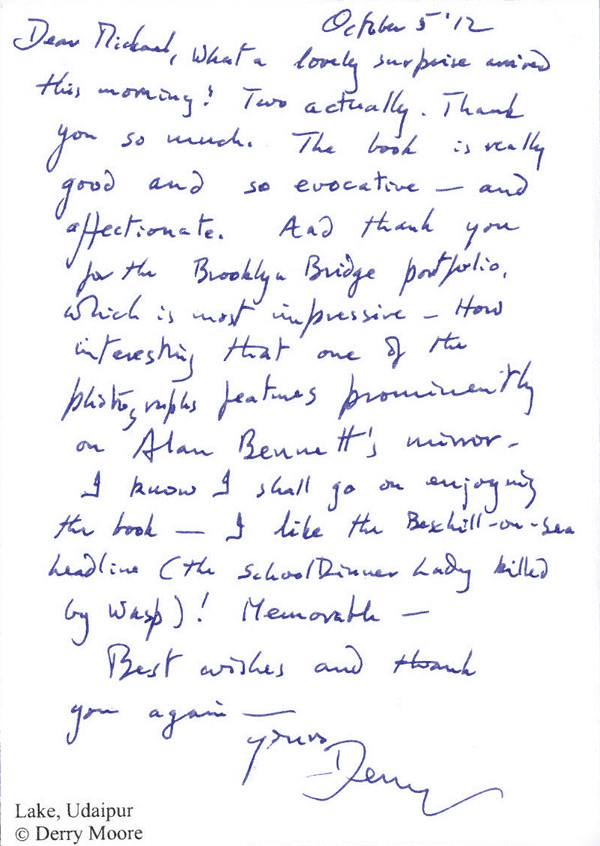 October 5 '12
Dear Michael, What a lovely surprise arrived
this morning! Two actually. Thank
you so much. The book is really
good and so evocative — and
affectionate. And thank you
for the Brooklyn Bridge portfolio,
which is most impressive — How
interesting that one of the
photographs features prominently
on Alan Bennett's mirror —
I know I shall go on enjoying
the book — I like the Bexhill-on-Sea
headline (the School Dinner Lady killed
by Wasp)! Memorable —
Best wishes and thank
you again —
Yours
Derry
Lake, Udaipur
© Derry Moore